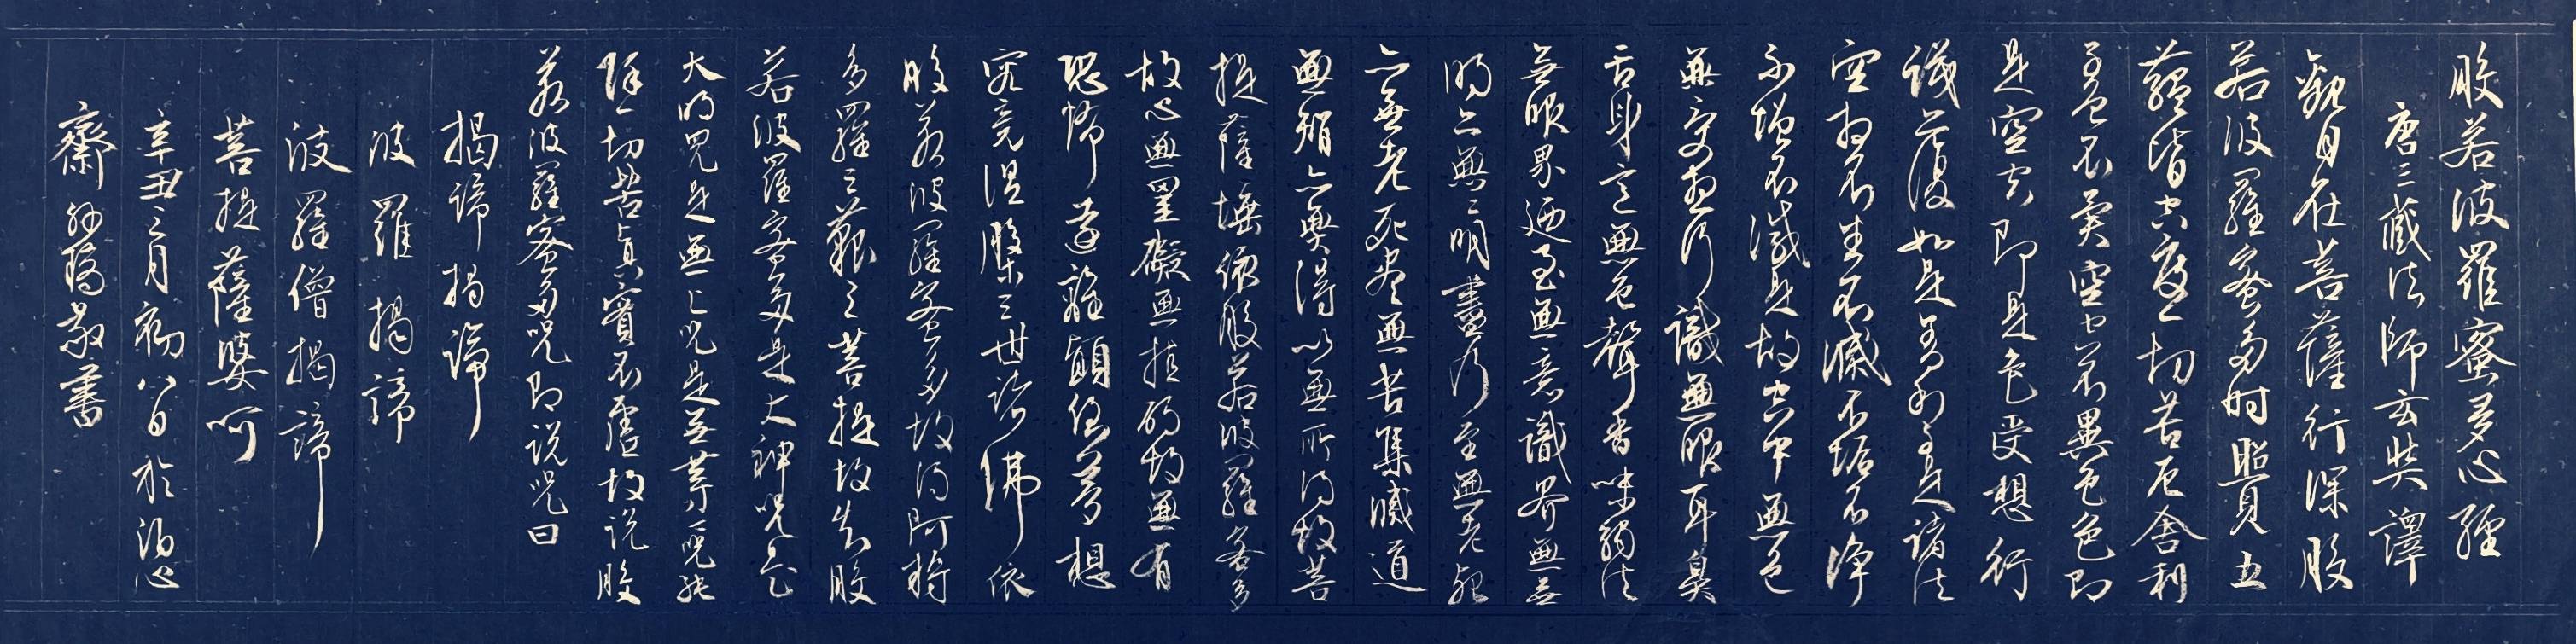 般若波羅蜜多心經
唐三藏法師玄奘譯
觀自在菩薩行深般
若波羅蜜多時照見五
蘊皆空度一切苦厄舍利
子色不異空空不異色色即
是空空即是色受想行
識亦復如是舍利子是諸法
空相不生不滅不垢不淨
不增不減是故空中無色
無受想行識無眼耳鼻
舌身意無色聲香味觸法
無眼界廼至無意識界無無
明亦無無明盡乃至無老死
亦無老死盡無苦集滅道
無智亦無得以無所得故菩
提薩埵依般若波羅蜜多
故心無罣礙無罣礙故無有
恐怖遠離顛倒夢想
究竟涅槃三世諸佛依
般若波羅蜜多故得阿耨
多羅三藐三菩提故知般
若波羅蜜多是大神咒是
大明咒是無上咒是無等等咒能
除一切苦真實不虛故說般
若波羅蜜多咒即說咒曰
揭諦揭諦
波羅揭諦
波羅僧揭諦
菩提薩婆呵
辛丑三月初八日於泊心
齋敬書